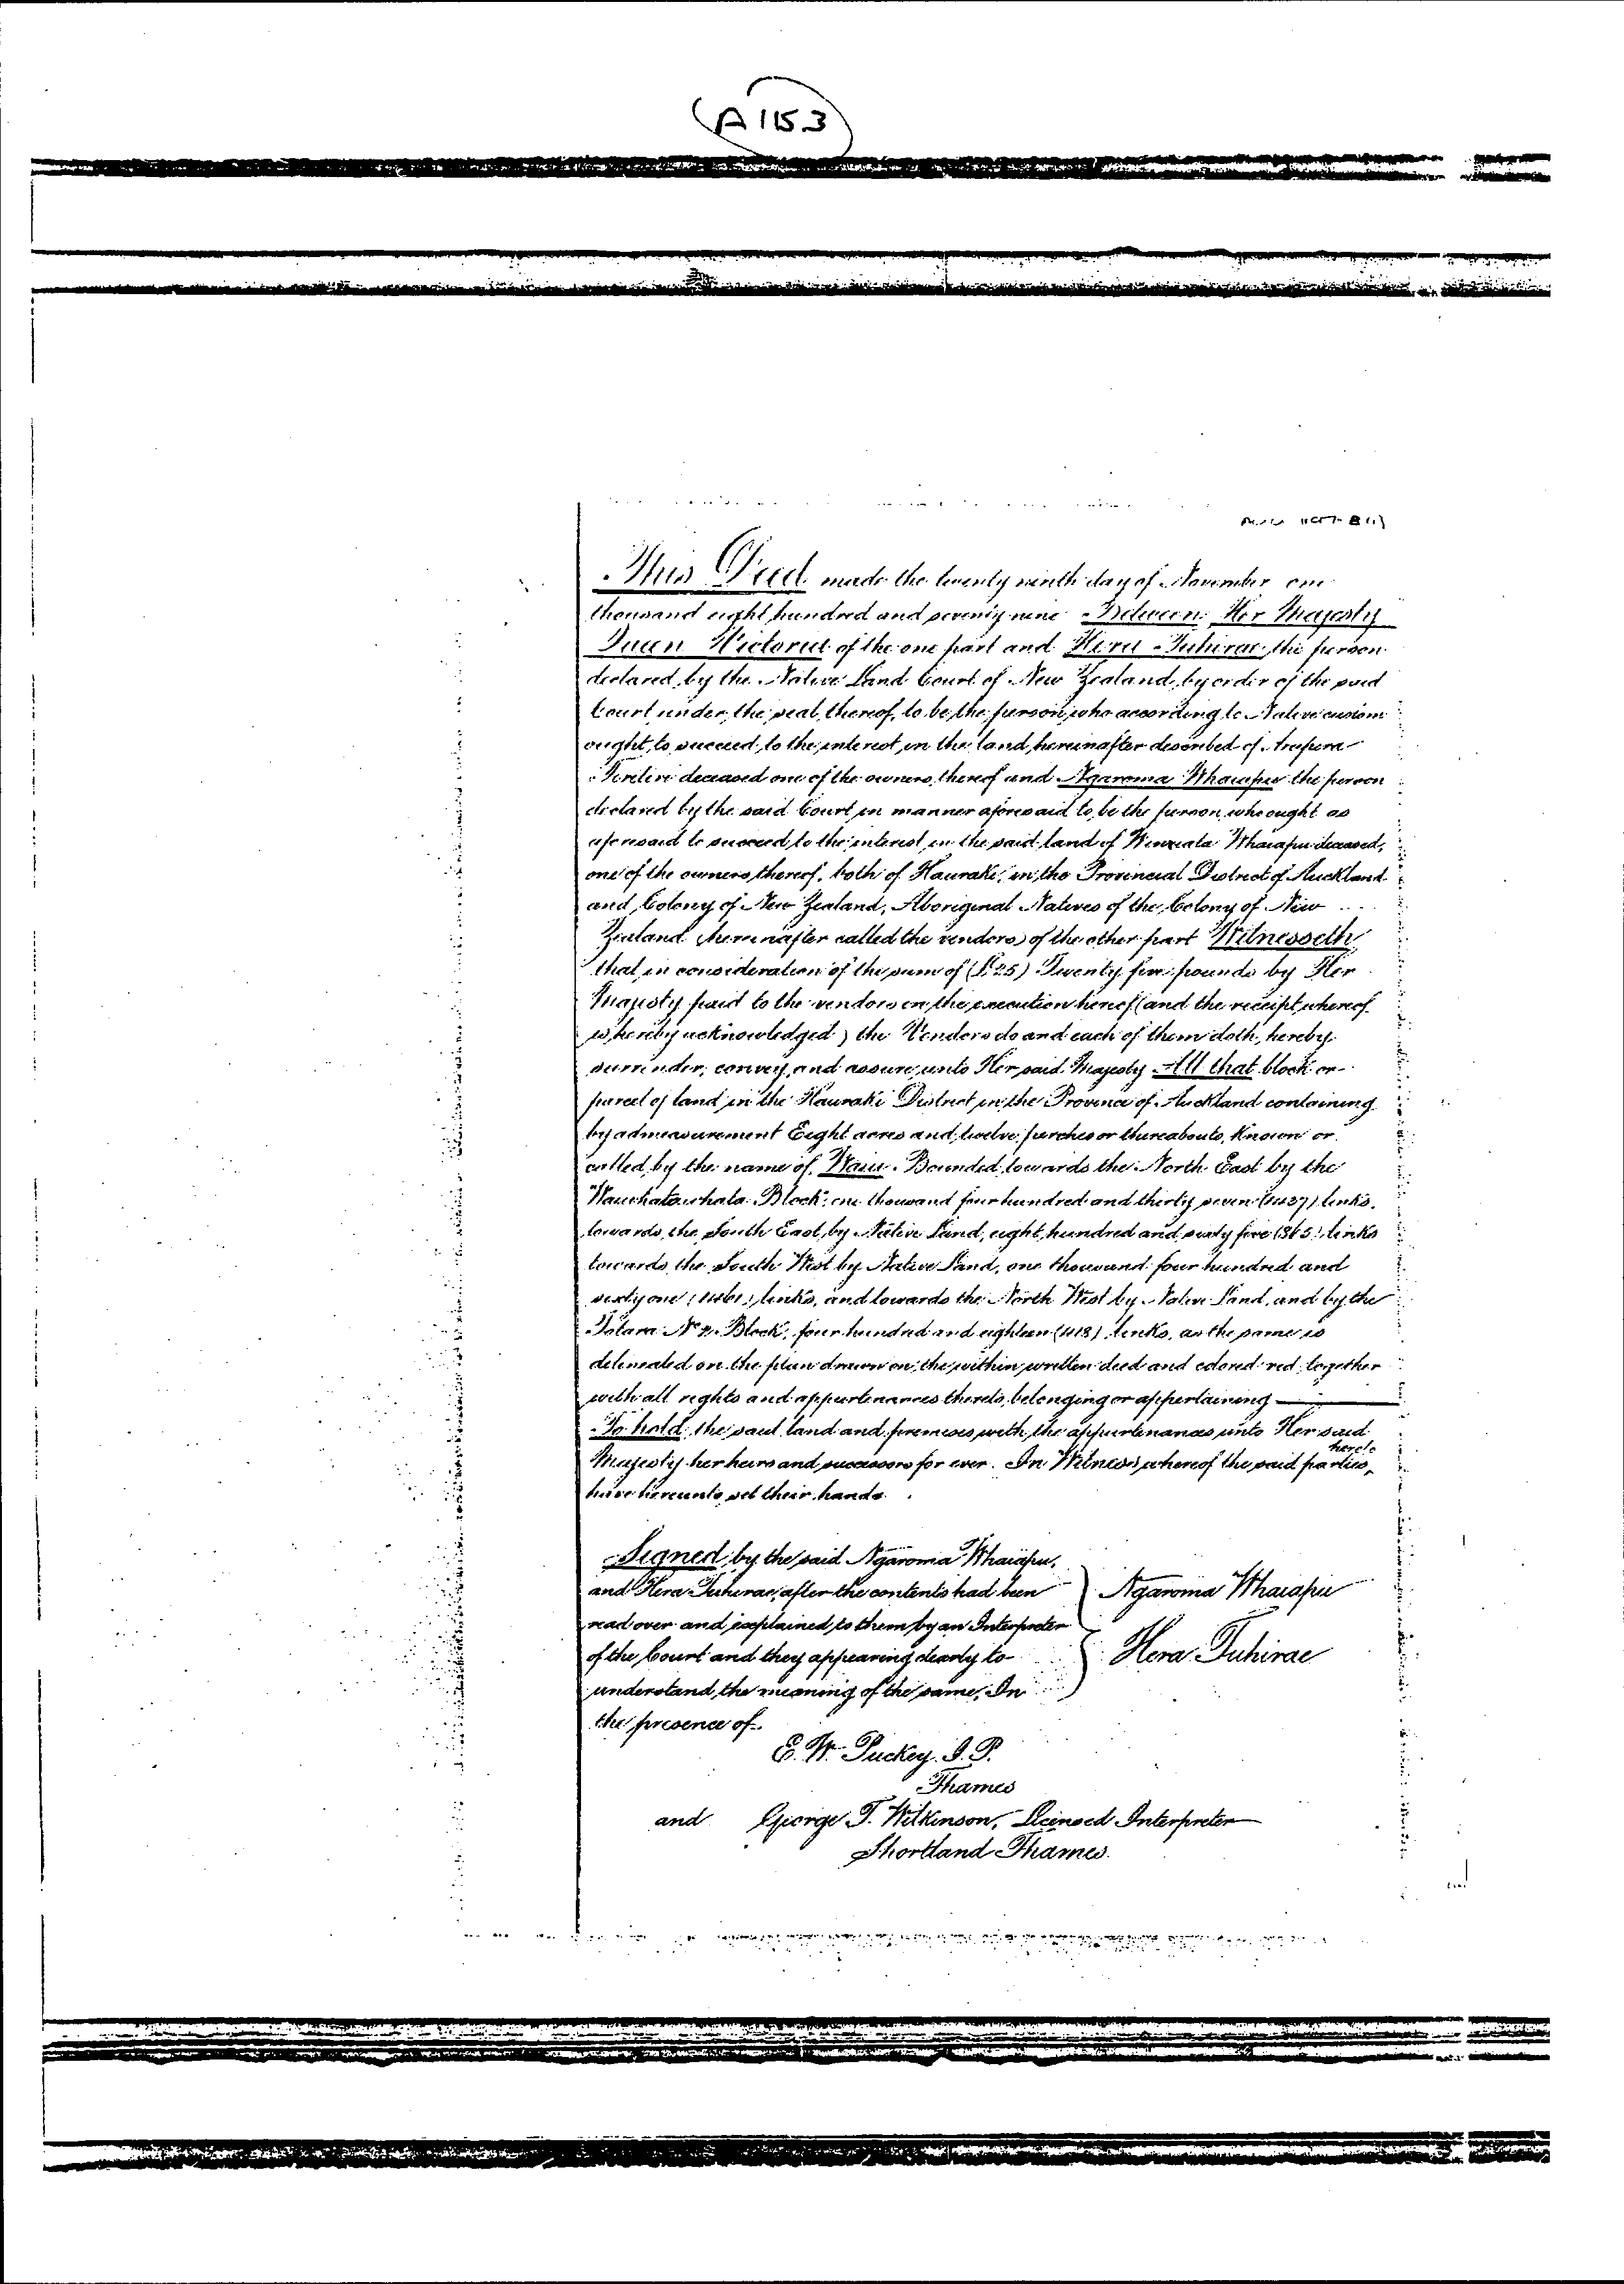 A1153
This Deed made the twenty ninth day of November one
thousand eight hundred and seventy nine Between Her Majesty
Queen Victoria of the one part and Hera Tuhirae, the person
declared by the Native Land Court of New Zealand, by order of the said
Court under the seal thereof, to be the person who according to Native custom
ought to succeed to the interest in the land hereinafter described of
deceased one of the owners thereof and Ngaroma Wharapu the person
declared by the said Court in manner aforesaid to be the person who ought as
aforesaid to succeed to the interest in the said land of Wharapu deceased,
one of the owners thereof, both of Hauraki, in the Provincial District of Auckland
and Colony of New Zealand, Aboriginal Natives of the Colony of New
Zealand (hereinafter called the vendors) of the other part Witnesseth
that in consideration of the sum of (£25) Twenty five pounds by Her
Majesty paid to the vendors on the execution hereof (and the receipt whereof
is hereby acknowledged) the Vendors do and each of them doth, hereby
surrender, convey, and assure unto Her said Majesty All that block or
parcel of land in the Hauraki District in the Province of Auckland containing
by admeasurement Eight acres and twelve perches or thereabouts, known or
called by the name of Bounded towards the North East by the
Block, one thousand four hundred and thirty seven (1437) links,
towards the South East, by Native Land, eight hundred and sixty five (865) links
towards the South West by Native Land, one thousand four hundred and
sixty one (1461) links, and towards the North West by Native Land, and by the
Totara No 2 Block, four hundred and eighteen (418) links, as the same is
delineated on the plan drawn on the within written deed and colored red together
with all rights and appurtenances thereto belonging or appertaining
To hold the said land and premises with the appurtenances unto Her said
Majesty her heirs and successors for ever. In Witness whereof the said parties hereto
have hereunto set their hands.
Signed by the said Ngaroma Wharapu,
and Hera Tuhirae, after the contents had been
read over and explained to them by an Interpreter
of the Court and they appearing clearly to
understand the meaning of the same, In
the presence of
Ngaroma Wharapu
Hera Tuhirae
E. W. Puckey. J. P.
Thames
and George T. Wilkinson, Licensed Interpreter
Shortland Thames.